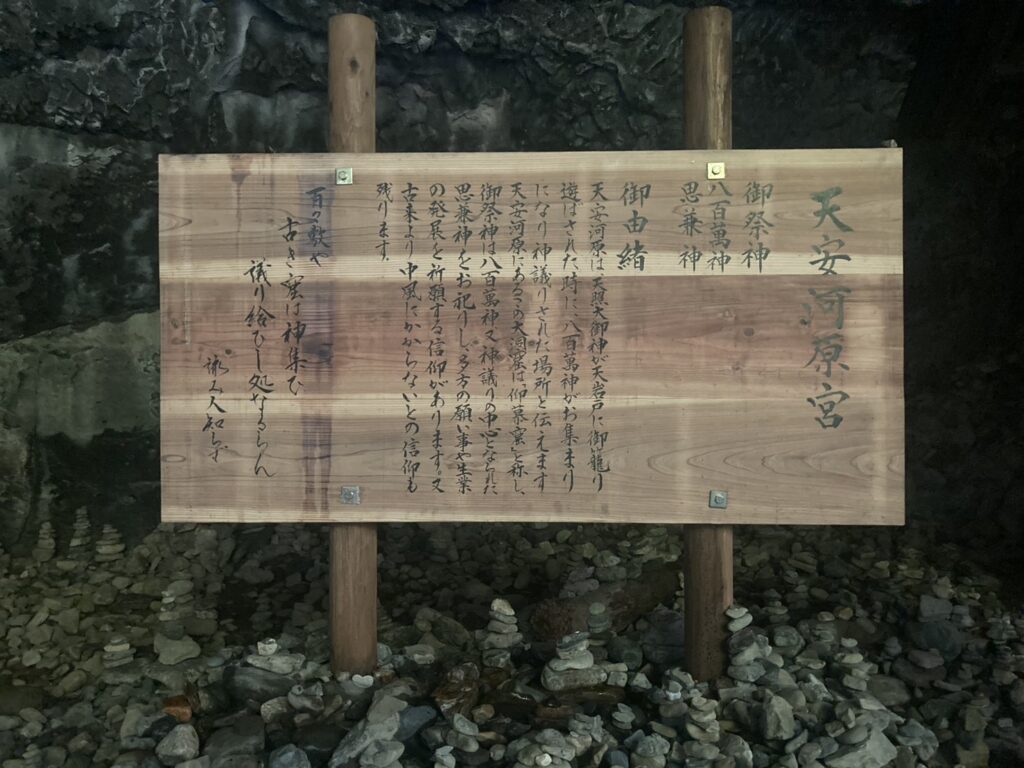 天安河原宮
御祭神
八百萬神
思兼神
御由緒
天安河原は、天照大御神が天岩戸に御籠り
遊はされた時に、八百萬神がお集まり
になり神議りされた場所と伝えます
天安河原にあるこの大洞窟は、「仰慕窟」と称し、
御祭神は八百萬神又神議りの中心となられた
思兼神をお祀りし、多方の願い事や生業
の発展を祈願する信仰があります。又
古来より中風にかからないとの信仰も
残ります。
百々敷や
古き窟は神集ひ
議り給ひし処なるらん
詠み人知らず